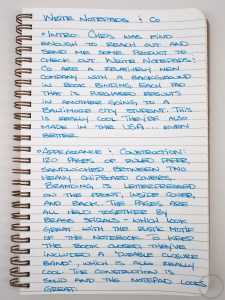 WRITE NOTEPADS & CO
• INTRO: CHRIS WAS KIND
ENOUGH TO REACH OUT AND
SEND ME SOME PRODUCT TO
CHECK OUT. WRITE NOTEPADS &
CO ARE A RELATIVELY NEW
COMPANY WITH A BACKGROUND
IN BOOK BINDING. EACH PAD
THAT IS PURCHASED RESULTS
IN ANOTHER GOING TO A
BALTIMORE CITY STUDENT. THIS
IS REALLY COOL. THEY'RE ALSO
MADE IN THE USA... EVEN
BETTER.
• APPEARANCE & CONSTRUCTION:
120 PAGES OF RULED PAPER,
SANDWICHED BETWEEN TWO
HEAVY CHIPBOARD COVERS.
BRANDING IS LETTERPRESSED
ON THE FRONT, INSIDE COVER,
AND BACK. THE PAGES ARE
ALL HELD TOGETHER BY
BRASS SPIRALS - WHICH LOOK
GREAT WITH THE RUSTIC MOTIF
OF THE NOTEBOOK. TO KEEP
THE BOOK CLOSED, THEY'VE
INCLUDED A "DURABLE CLOSURE
BAND" WHICH IS ALSO REALLY
COOL. THE CONSTRUCTION IS
SOLID AND THE NOTEPAD LOOKS
GREAT.